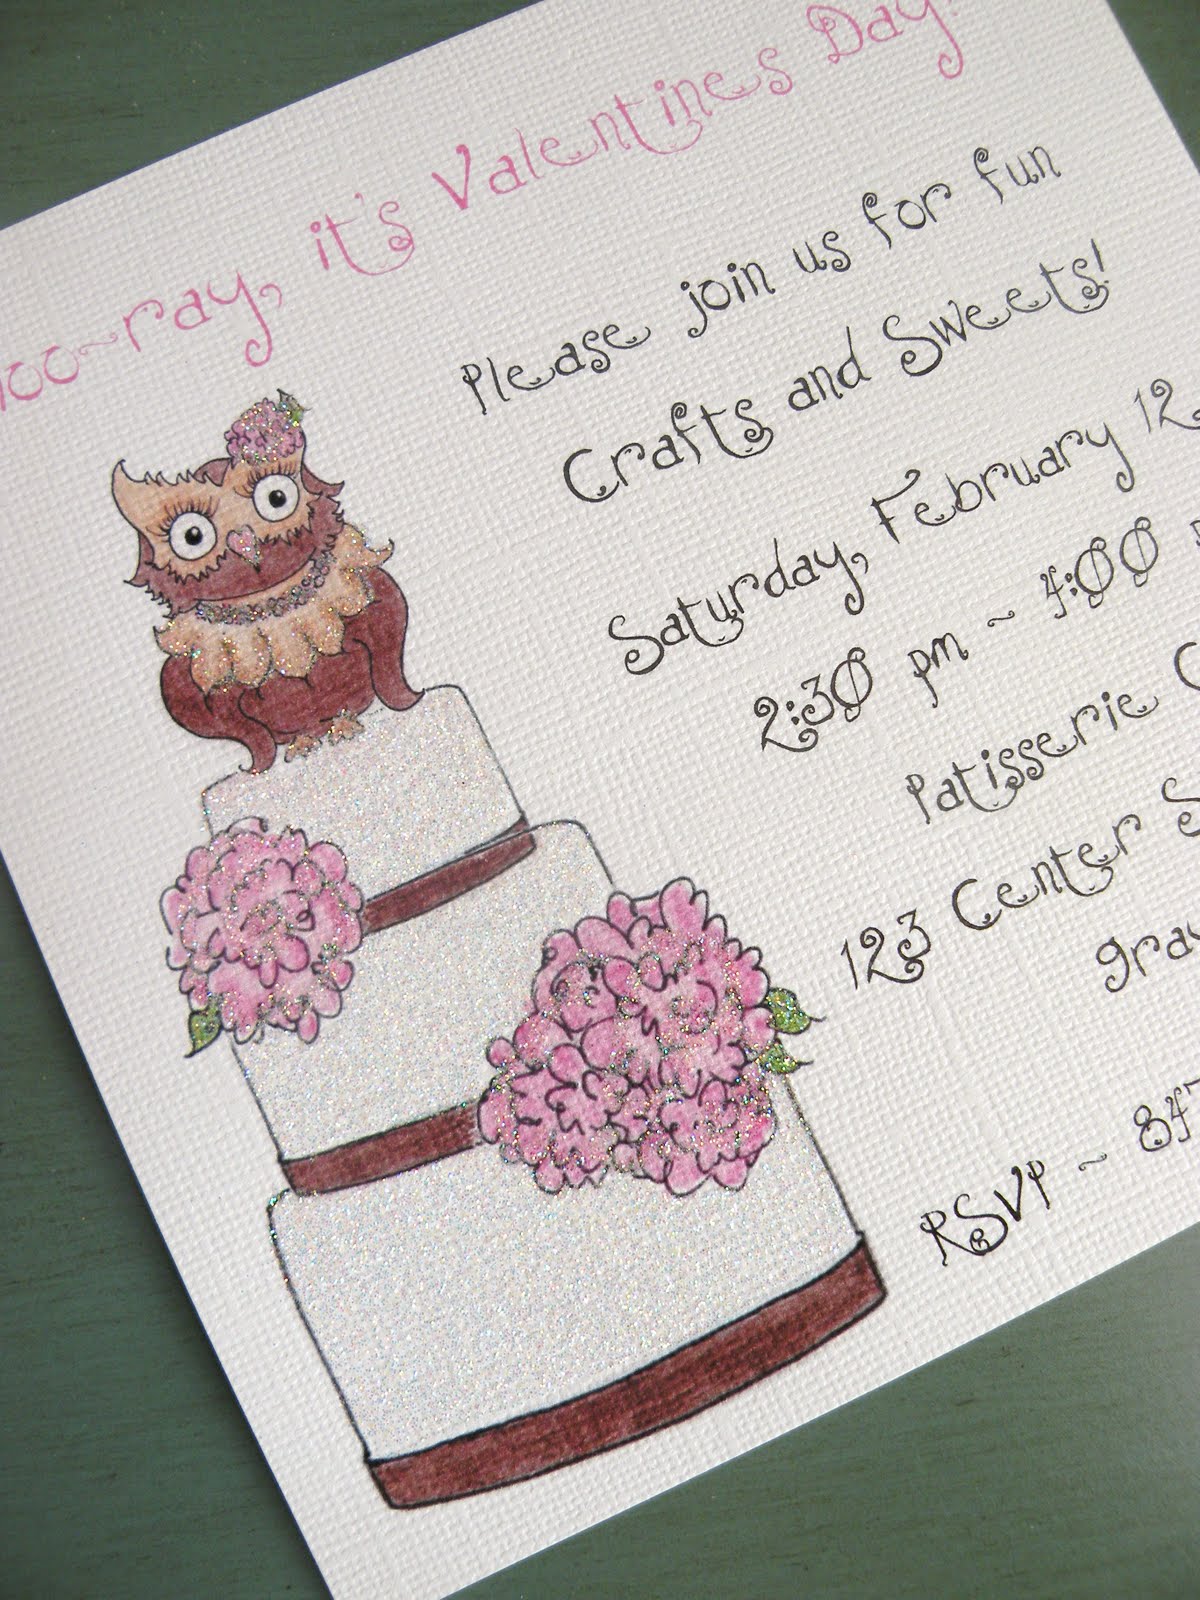 hoo~ray, it's Valentines Day!
Please join us for fun
Crafts and Sweets!
Saturday, February 12
2:30 pm ~ 4:00
Patisserie
123 Center
RSVP ~ 847